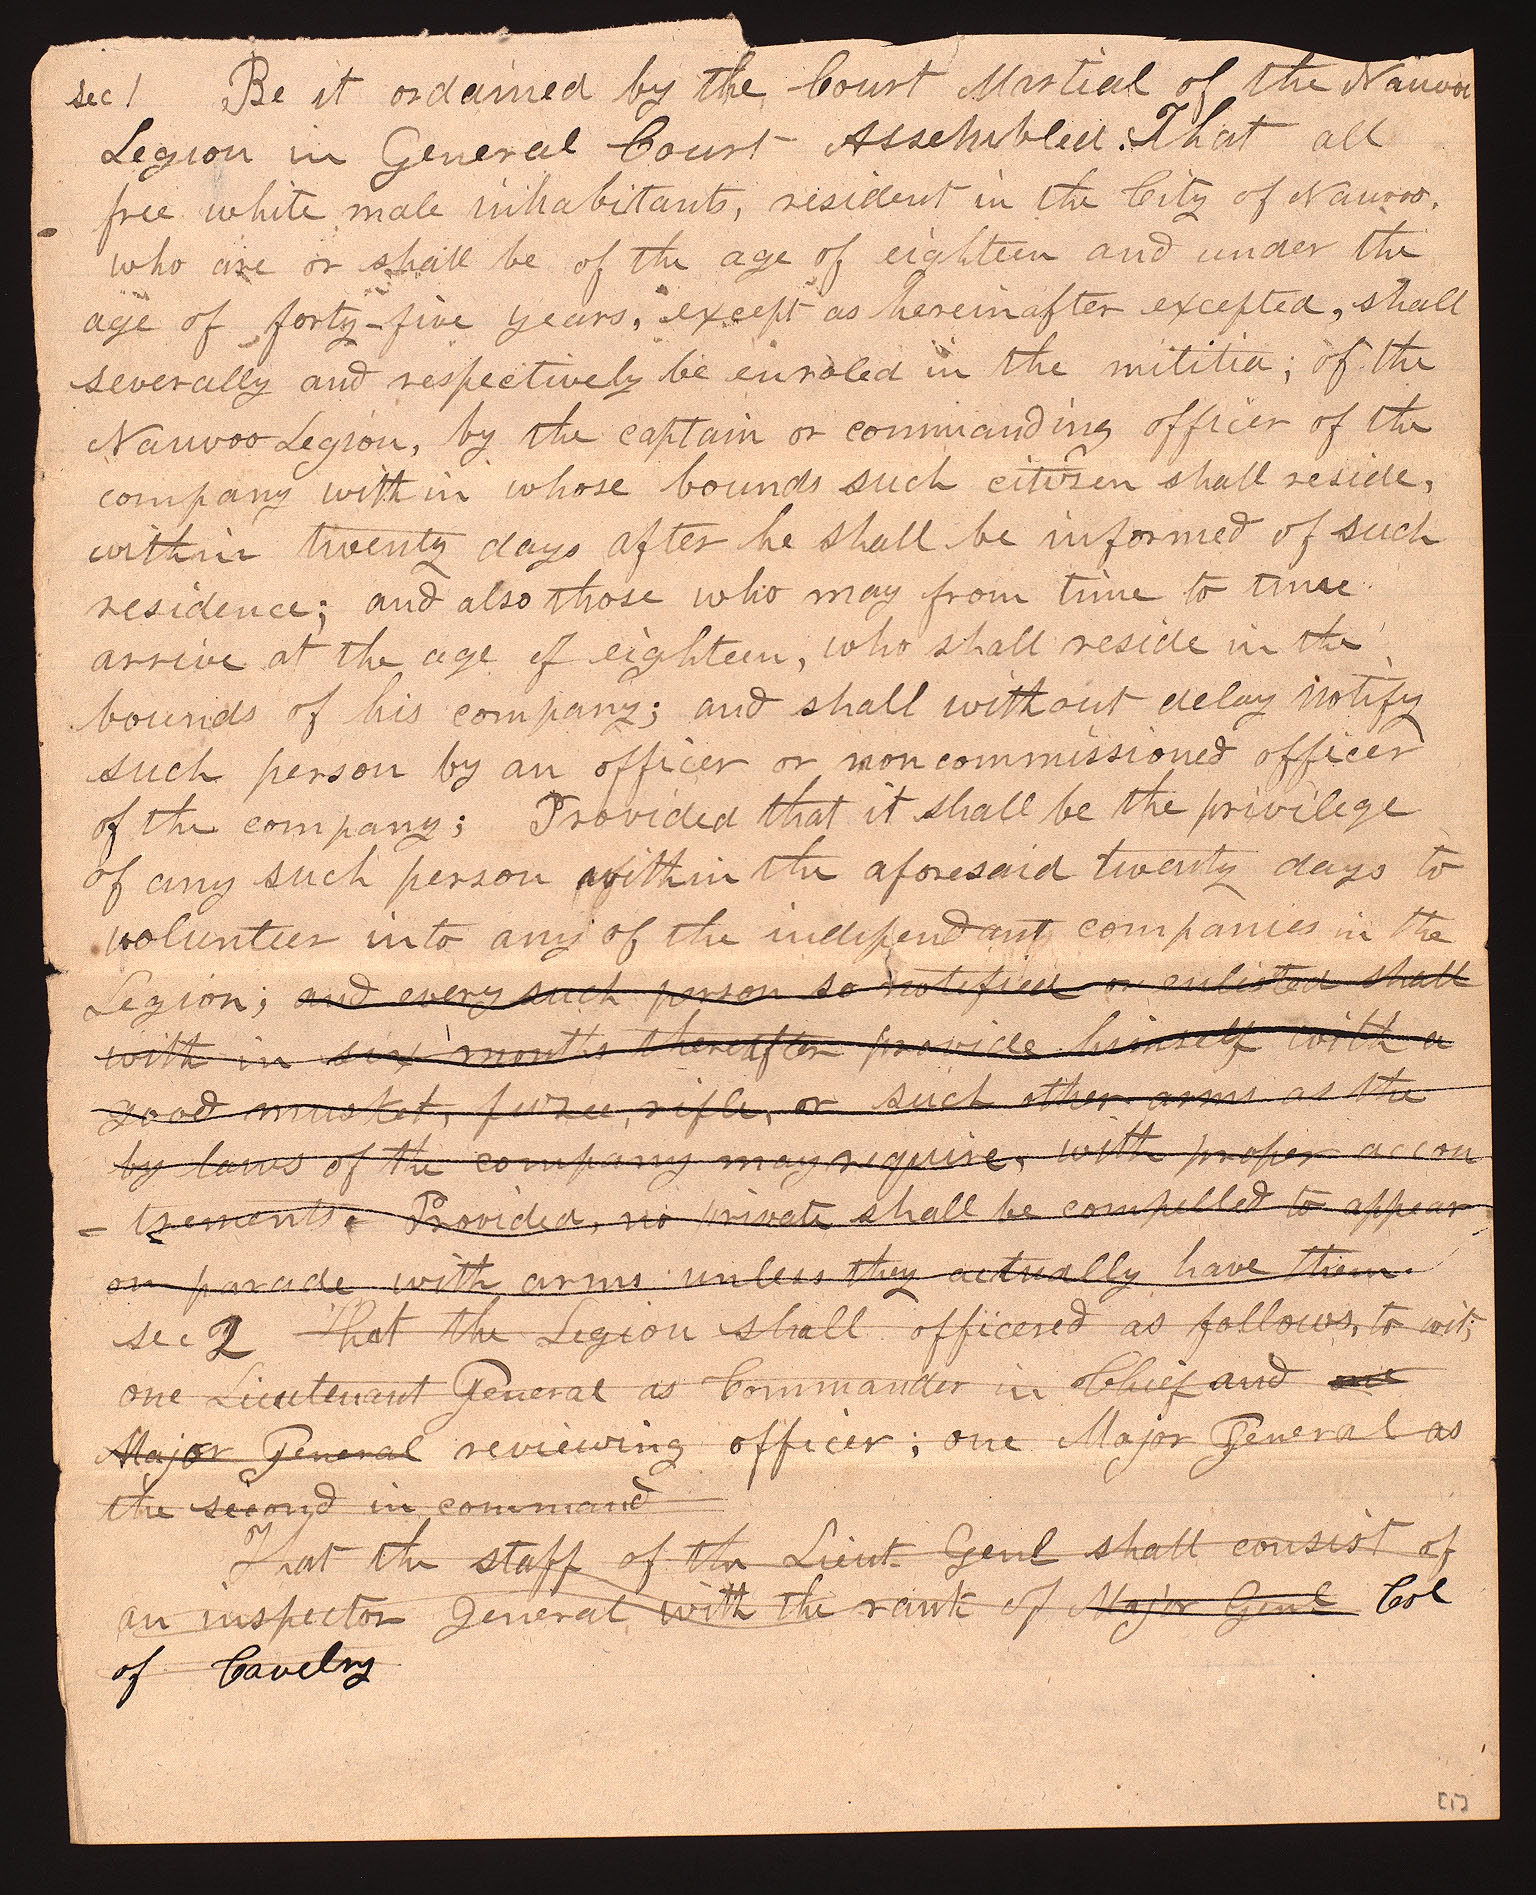 sec 1 Be it ordained by the Court Martial of the Nauvoo
Legion in General Court Assembled. That all
free white male inhabitants, resident in the City of Nauvoo,
who are or shall be of the age of eighteen and under the
age of forty-five years, except as hereinafter excepted, shall
severally and respectively be enroled in the mititia; of the
Nauvoo Legion, by the captain or commanding officer of the
company within whose bounds such citizen shall reside,
within twenty days after he shall be informed of such
residence; and also those who may from time to time
arrive at the age of eighteen, who shall reside in the
bounds of his company; and shall without delay notify
such person by an officer or noncommissioned officer
of the company; Provided that it shall be the privilege
of any such person within the aforesaid twenty days to
volunteer into any of the independant companies in the
Legion; and every such person so notified or enlisted shall
with in six months thereafter provide himself with a
good musket, fuzee, rifle, or such other arms as the
by laws of the company may require, with proper accou
- trements. Provided, no private shall be compelled to appear
on parade with arms unless they actually have them.
sec 2 That the Legion shall officered as follows, to wit;
one Lieutenant General as Commander in Chief and one
Major General reviewing officer; one Major General as
the second in command
That the staff of the Lieut. Genl shall consist of
an inspector general with the rank of Major Genl Col
of Cavelry
[1]